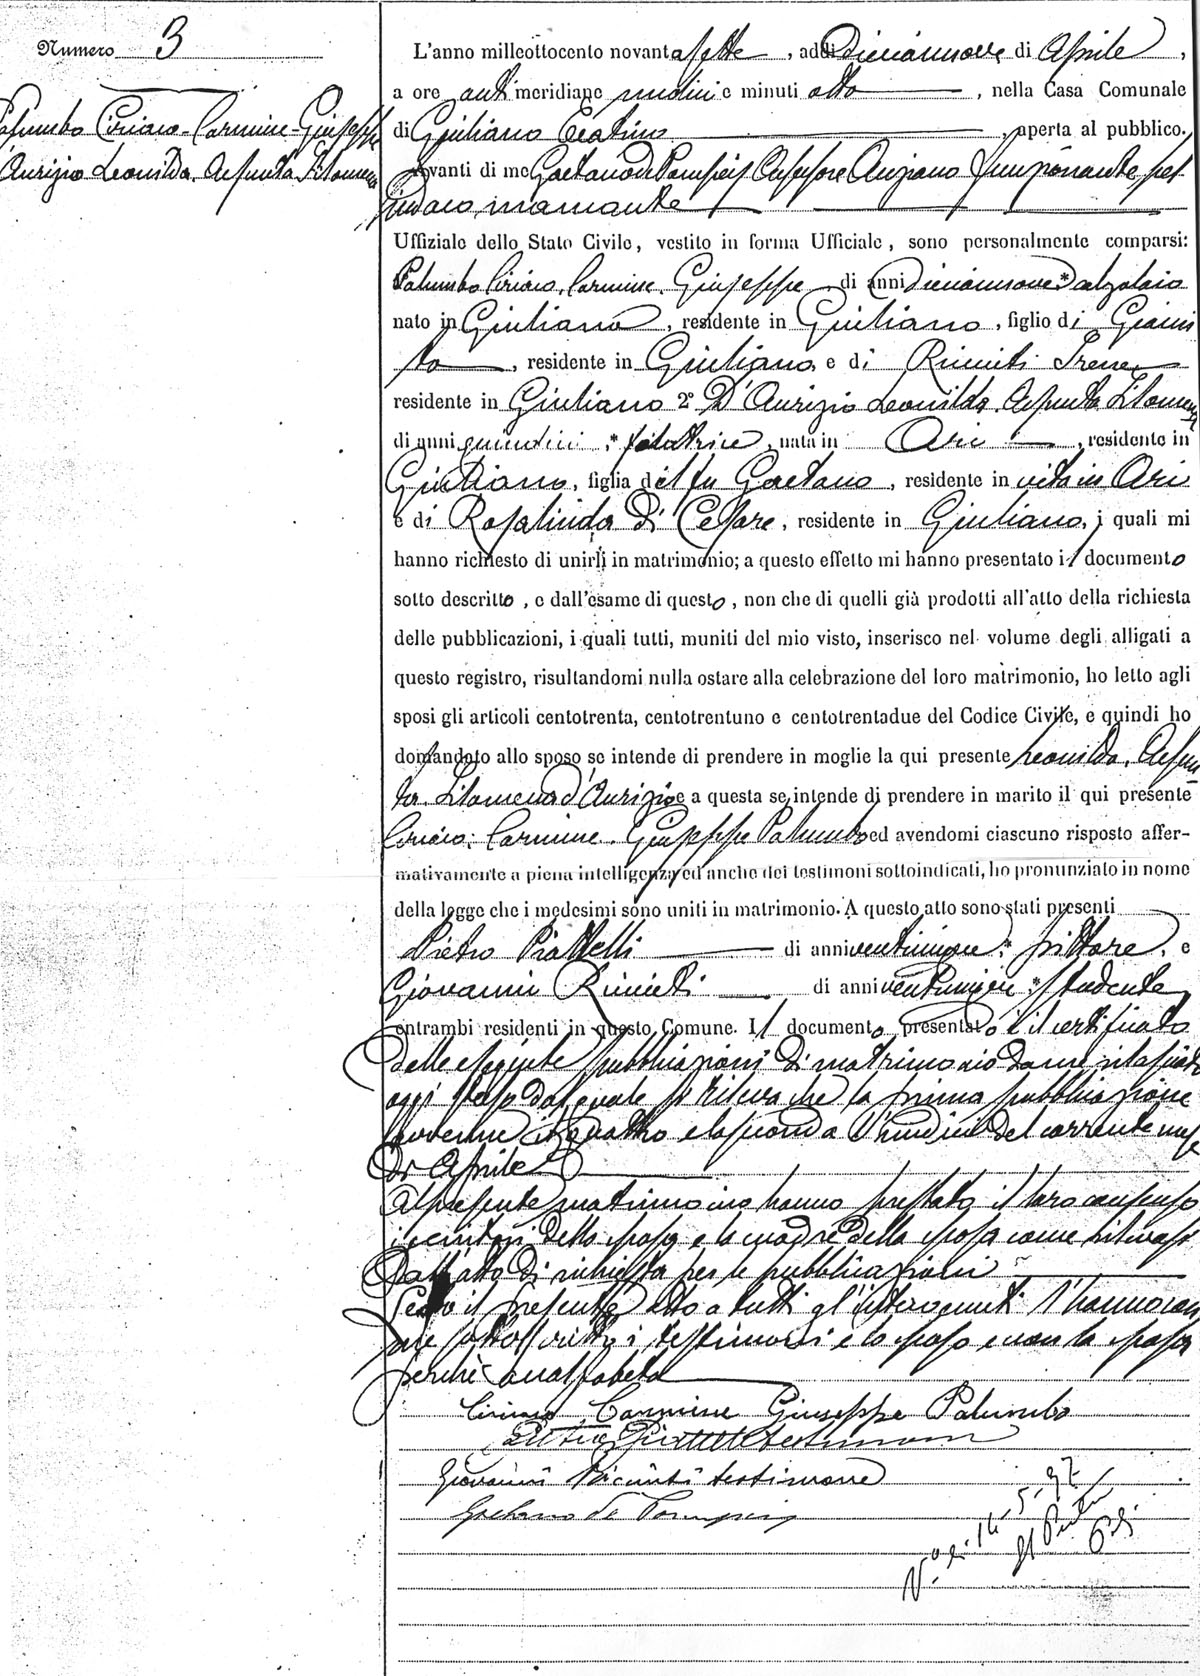 Numero 3
Palumbo Ciriaco-Carmine-Giuseppe
D'Aurizio Leonilda. Assunta Filomena
L'anno milleottocento novantasette, addì Diciannove di Aprile,
a ore antimeridiane undici e minuti otto, nella Casa Comunale
di Giuliano Teatino, aperta al pubblico.
Avanti di me Gaetano de Pompeis Assessore Anziano funzionante pel
Sindaco mancante
Uffiziale dello Stato Civile, vestito in forma Ufficiale, sono personalmente comparsi:
Palumbo Ciriaco, Carmine, Giuseppe, di anni Diciannove calzolaio
nato in Giuliano, residente in Giuliano, figlio di Giacin
to, residente in Giuliano, e di Ricciuti Irene
residente in Giuliano 2° D'Aurizio Leonilda. Assunta Filomena
di anni quindici, filatrice, nata in Ari, residente in
Giuliano, figlia del fu Gaetano, residente in vita in Ari
e di Rosalinda Di Cesare, residente in Giuliano, i quali mi
hanno richiesto di unirli in matrimonio; a questo effetto mi hanno presentato il documento
sotto descritto, e dall'esame di questo, non che di quelli già prodotti all'atto della richiesta
delle pubblicazioni, i quali tutti, muniti del mio visto, inserisco nel volume degli alligati a
questo registro, risultandomi nulla ostare alla celebrazione del loro matrimonio, ho letto agli
sposi gli articoli centotrenta, centotrentuno e centotrentadue del Codice Civile, e quindi ho
domandato allo sposo se intende di prendere in moglie la qui presente Leonilda. Assun
ta. Filomena d'Aurizio e a questa se intende di prendere in marito il qui presente
Ciriaco. Carmine. Giuseppe Palumbo ed avendomi ciascuno risposto affer-
mativamente a piena intelligenza ed anche dei testimoni sottoindicati, ho pronunziato in nome
della legge che i medesimi sono uniti in matrimonio. A questo atto sono stati presenti
Pietro Piattelli di anni pittore, e
Giovanni Ricciuti di anni studente,
entrambi residenti in questo Comune. Il documento presentato è il certificato
delle eseguite pubblicazioni di matrimonio da me rilasciato
oggi stesso dal quale si rileva che la prima pubblicazione
avvenne il quattro e la seconda l'undici del corrente mese
di Aprile
Al presente matrimonio hanno prestato il loro consenso
i genitori dello sposo e la madre della sposa come rilevasi
dall'atto di richiesta per le pubblicazioni
Letto il presente atto a tutti gl'intervenuti l'hanno con
me sottoscritto i testimoni e lo sposo e non la sposa
perchè analfabeta
Ciriaco Carmine Giuseppe Palumbo
Pietro Piattelli testimone
Giovanni Ricciuti testimone
Gaetano de Pompeis
14-5-97